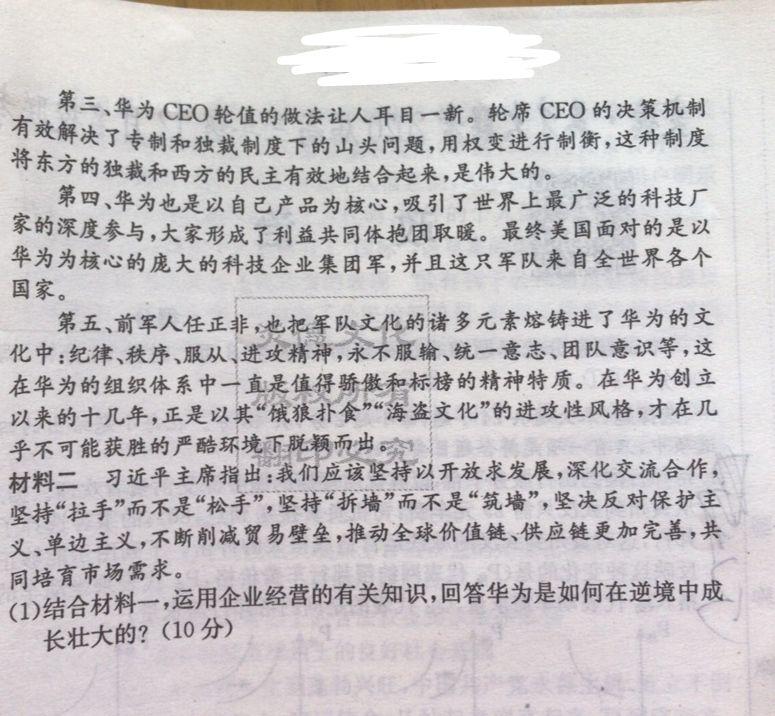 第三、华为 CEO 轮值的做法让人耳目一新。轮席 CEO 的决策机制
有效解决了专制和独裁制度下的山头问题，用权变进行制衡，这种制度
将东方的独裁和西方的民主有效地结合起来，是伟大的。
第四、华为也是以自己产品为核心，吸引了世界上最广泛的科技厂
家的深度参与，大家形成了利益共同体抱团取暖。最终美国面对的是以
华为为核心的庞大的科技企业集团军，并且这只军队来自全世界各个
国家。
第五、前军人任正非，也把军队文化的诸多元素熔铸进了华为的文
化中：纪律、秩序、服从、进攻精神，永不服输、统一意志、团队意识等，这
在华为的组织体系中一直是值得骄傲和标榜的精神特质。在华为创立
以来的十几年，正是以其“饿狼扑食”“海盗文化”的进攻性风格，才在几
乎不可能获胜的严酷环境下脱颖而出。
材料二 习近平主席指出：我们应该坚持以开放求发展，深化交流合作，
坚持“拉手”而不是“松手”，坚持“拆墙”而不是“筑墙”，坚决反对保护主
义、单边主义，不断削减贸易壁垒，推动全球价值链、供应链更加完善，共
同培育市场需求。
(1)结合材料一，运用企业经营的有关知识，回答华为是如何在逆境中成
长壮大的？(10 分)
版权所有
翻印必究